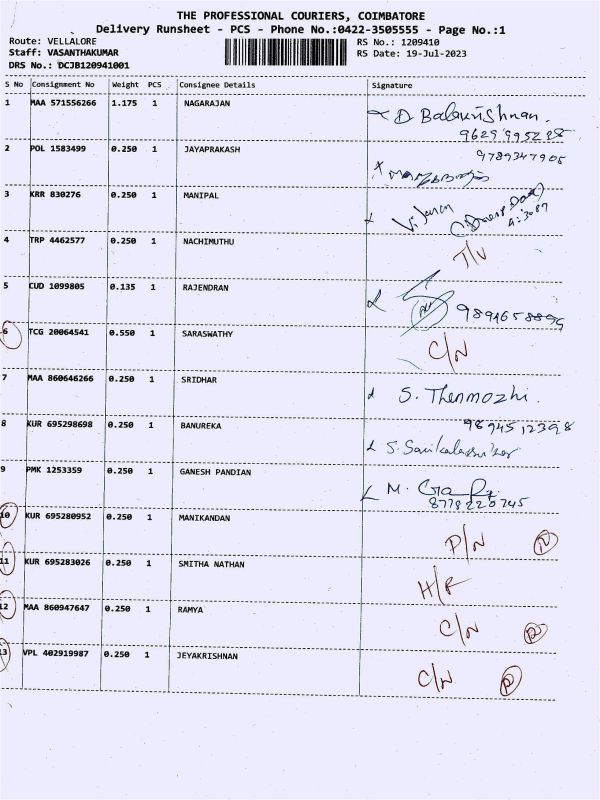 THE PROFESSIONAL COURIERS, COIMBATORE
Delivery Runsheet - PCS - Phone No.:0422-3505555 - Page No.:1
Route: VELLALORE RS No.: 1209410
Staff: VASANTHAKUMAR RS Date: 19-Jul-2023
DRS No.: DCJB120941001
S No Consignment No Weight PCS Consignee Details Signature
1 MAA 571556266 1.175 1 NAGARAJAN
2 POL 1583499 0.250 1 JAYAPRAKASH 9789347905
3 KRR 830276 0.250 1 MANIPAL
4 TRP 4462577 0.250 1 NACHIMUTHU
5 CUD 1099805 0.135 1 RAJENDRAN
6 TCG 20064541 0.550 1 SARASWATHY C/N
7 MAA 860646266 0.250 1 SRIDHAR S. Thenmozhi.
8 KUR 695298698 0.250 1 BANUREKA 9894512398
9 PMK 1253359 0.250 1 GANESH PANDIAN M.
8778220745
10 KUR 695280952 0.250 1 MANIKANDAN P/N
11 KUR 695283026 0.250 1 SMITHA NATHAN
12 MAA 860947647 0.250 1 RAMYA C/N
13 VPL 402919987 0.250 1 JEYAKRISHNAN C/N